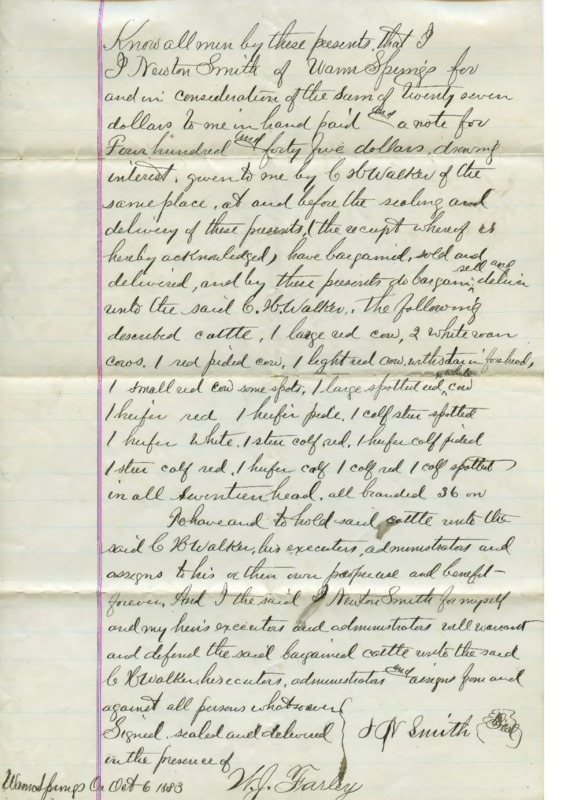 Know all men by these presents, that I
I Newton Smith of Warm Springs for
and in consideration of the sum of Twenty seven
dollars to me in hand paid and a note for
Four hundred and forty five dollars, drawing
interest, given to me by C H Walker of the
same place, at and before the sealing and
delivery of these presents, (the receipt whereof is
hereby acknowledged, have bargained, sold and
delivered, and by these presents do bargain, sell and deliver
unto the said C. H Walker, the following
described cattle, 1 large red cow, 2 white roan
cows. 1 red pided cow, 1 light red cow, with star in forhead,
1 small red cow some spots, 1 large spotted red white cow
1 heifer red 1 heifer pide, 1 calf steer spotted
1 heifer white. 1 steer calf red, 1 heifer calf pided
1 steer calf red, 1 heifer calf 1 calf red 1 calf spotted
in all seventeen head, all branded 36 on
To have and to hold said cattle unto the
said C H Walker, his executers, administrators and
assigns to his or their own proper use and benefit
forever. And I the said I Newton Smith for myself
and my heirs executors and administrators will warrant
and defend the said bargained cattle unto the said
C H Walker his executors, administrators and assigns from and
against all persons whatsoever
Signed, sealed and delivered
in the presence of
I N Smith (Seal)
W. J. Farley
Warm Springs Or Oct 6 1883